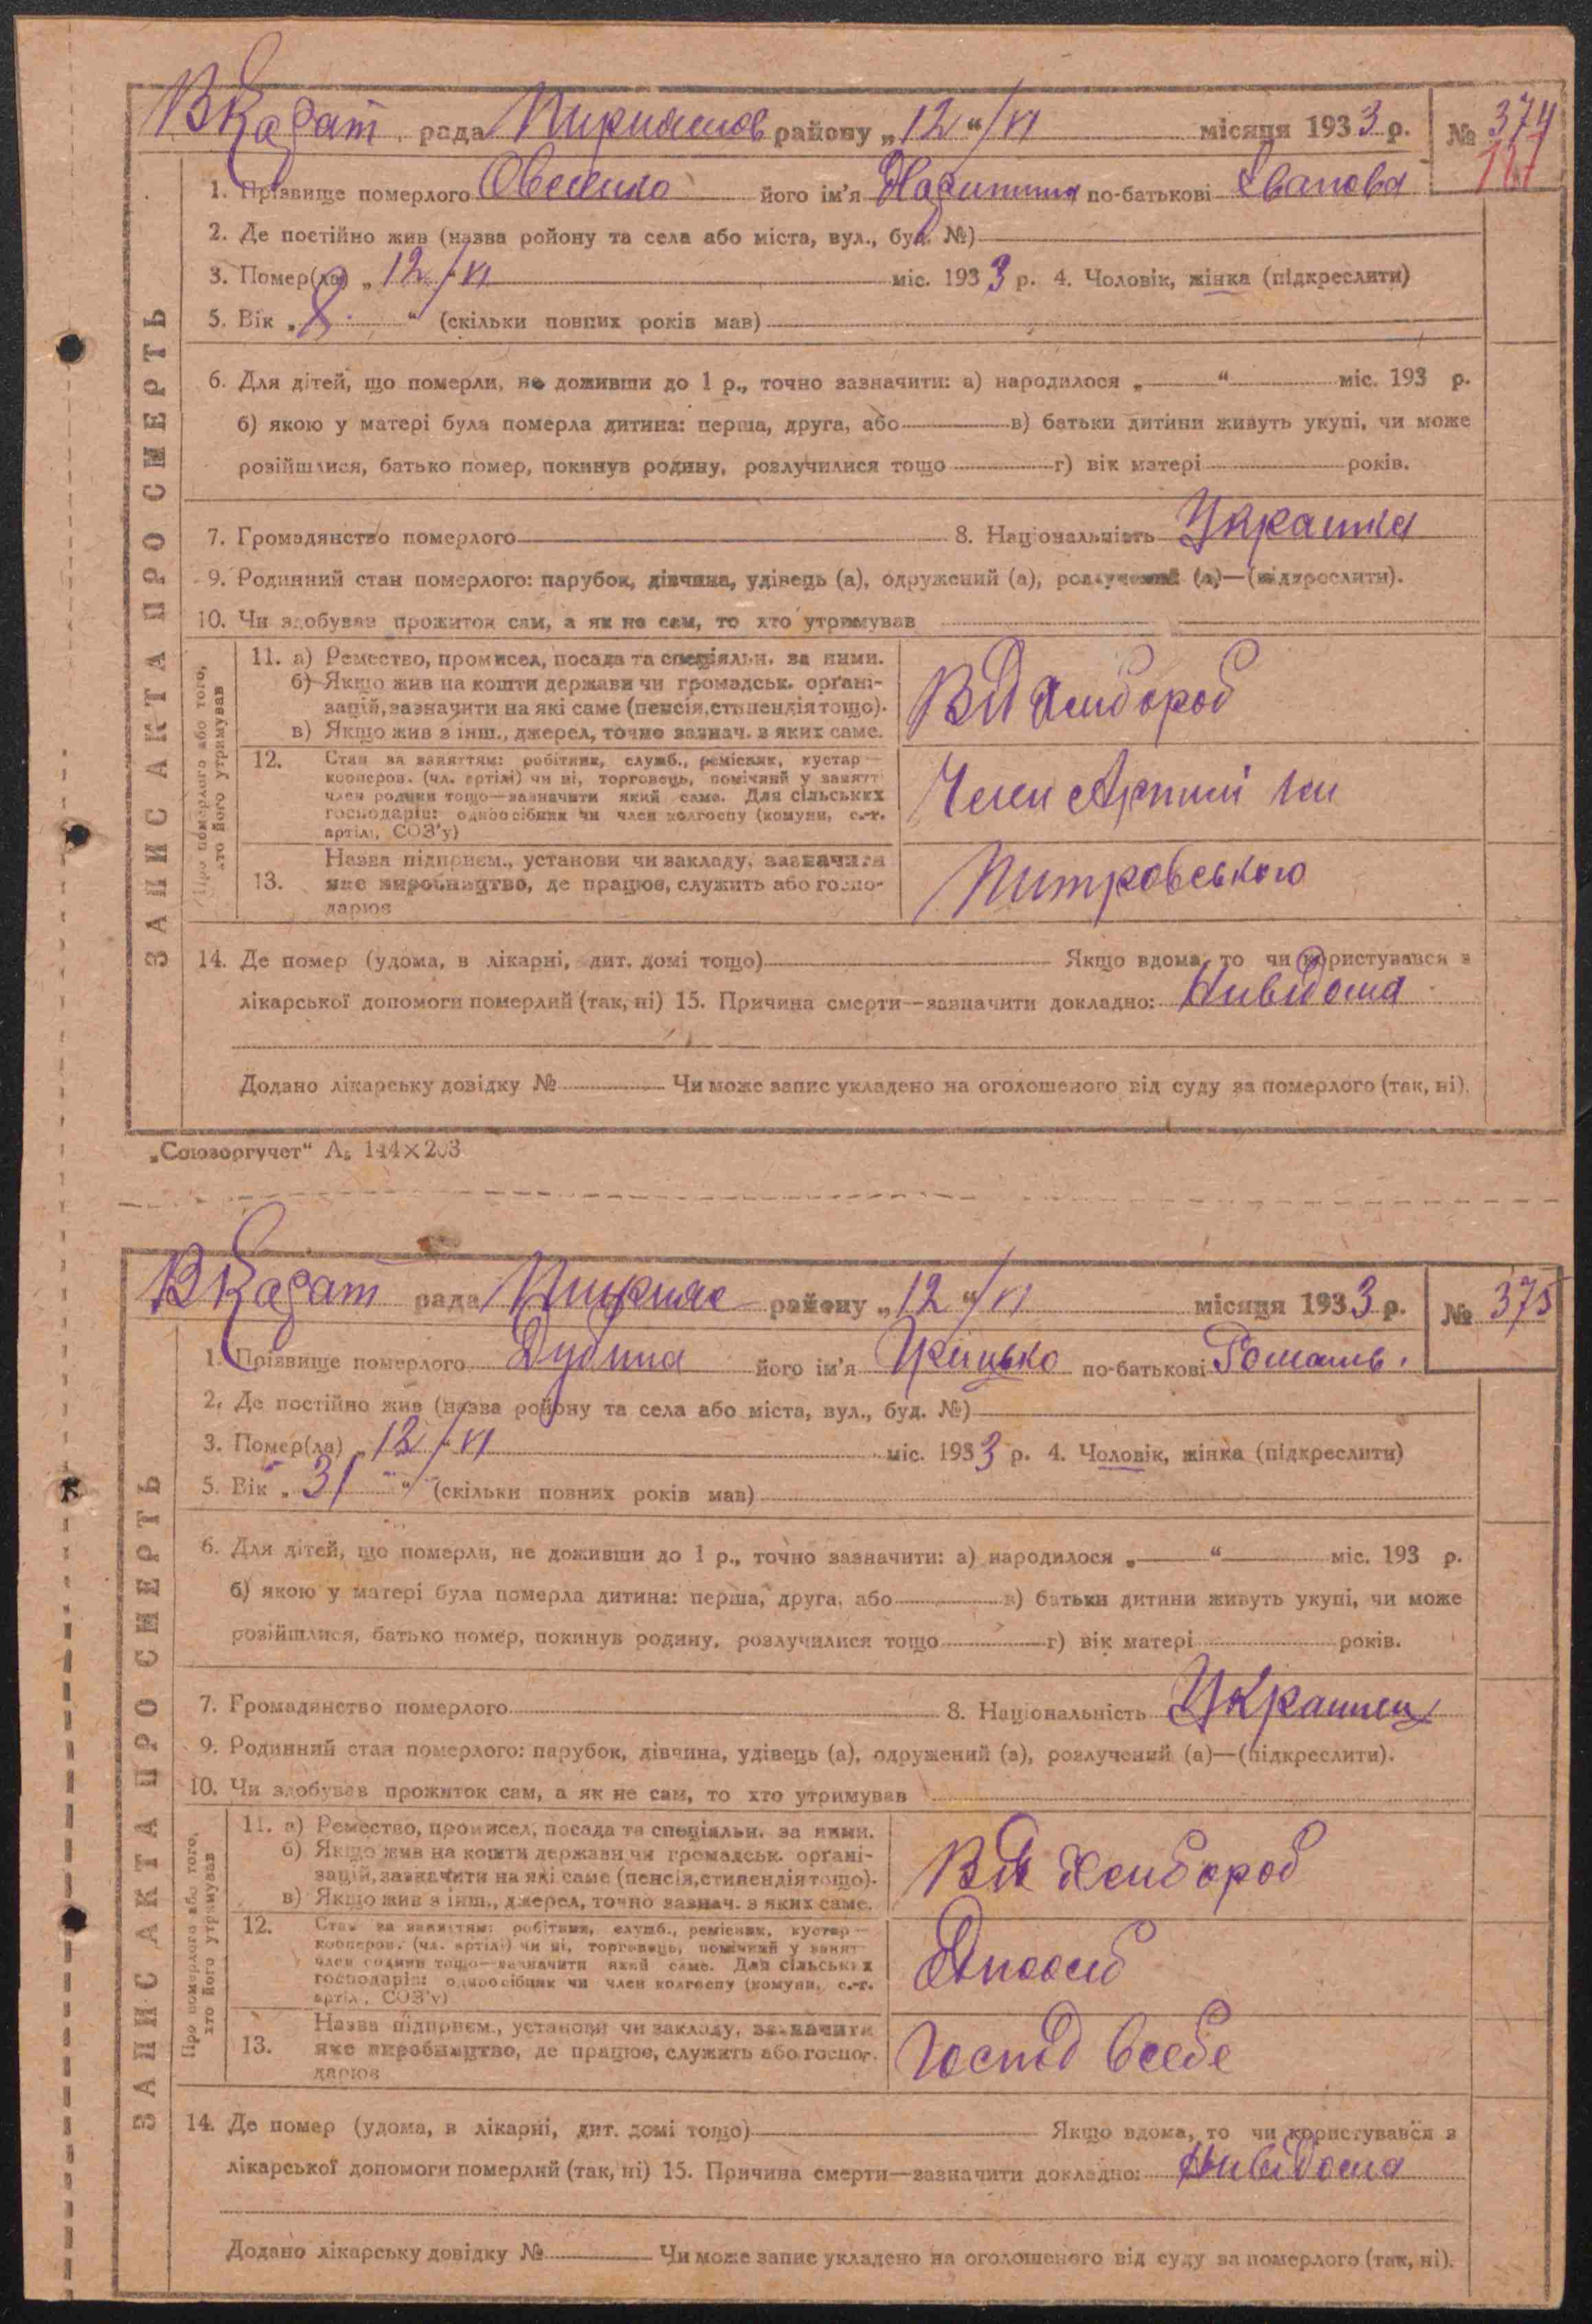 ВКагат рада Пирнашов району „12“/VI місяця 1933 р. № 374
127
1. Прізвище померлого його ім'я по-батькові Іванова
2. Де постійно жив (назва ройону та села або міста, вул., буд. №)
3. Помер(ла) „12/VI міс. 1933 р. 4. Чоловік, жінка (підкреслити)
5. Вік „8“ (скільки повних років мав)
6. Для дітей, що померли, не доживши до 1 р., точно зазначити: а) народилося „ “ міс. 193 р.
б) якою у матері була померла дитина: перша, друга, або в) батьки дитини живуть укупі, чи може
розійшлися, батько помер, покинув родину, розлучилися тощо г) вік матері років.
7. Громадянство померлого 8. Національність Украинка
9. Родинний стан померлого: парубок, дівчина, удівець (а), одружений (а), розлучений (а)—(підкреслити).
10. Чи здобував прожиток сам, а як не сам, то хто утримував
ЗАПИС АКТА ПРО СМЕРТЬ
Про померлого або того,
хто його утримував
11. а) Ремество, промисел, посада та спеціяльн. за ними.
б) Якщо жив на кошти держави чи громадськ. органі-
зацій, зазначити на які саме (пенсія, стипендія тощо).
в) Якщо жив з інш., джерел, точно зазнач. з яких саме.
Хлибороб
12. Стан за заняттям: робітник, служб., ремісник, кустар—
кооперов. (чл. артілі) чи ні, торговець, помічний у занятт
член родини тощо—зазначити який саме. Для сільських
господарів: одноосібник чи член колгоспу (комуни, с.-г.
артілі, СОЗ'у)
Член Артилі Им
13. Назва підприєм., установи чи закладу, зазначити
яке виробництво, де працює, служить або госпо-
дарює
Питровського
14. Де помер (удома, в лікарні, дит. домі тощо) Якщо вдома, то чи користувався з
лікарської допомоги померлий (так, ні) 15. Причина смерти—зазначити докладно: Нивідома
Додано лікарську довідку № Чи може запис укладено на оголошеного від суду за померлого (так, ні).
„Союзоргучет“ А₅ 144×203
ВКагат рада Пирняс району „12“/VI місяця 1933 р. № 375
1. Прізвище померлого Дубина його ім'я Грицько по-батькові Романів.
2. Де постійно жив (назва ройону та села або міста, вул., буд. №)
3. Помер(ла) „12/VI міс. 1933 р. 4. Чоловік, жінка (підкреслити)
5. Вік „31“ (скільки повних років мав)
6. Для дітей, що померли, не доживши до 1 р., точно зазначити: а) народилося „ “ міс. 193 р.
б) якою у матері була померла дитина: перша, друга, або в) батьки дитини живуть укупі, чи може
розійшлися, батько помер, покинув родину, розлучилися тощо г) вік матері років.
7. Громадянство померлого 8. Національність Украинец
9. Родинний стан померлого: парубок, дівчина, удівець (а), одружений (а), розлучений (а)—(підкреслити).
10. Чи здобував прожиток сам, а як не сам, то хто утримував
ЗАПИС АКТА ПРО СМЕРТЬ
Про померлого або того,
хто його утримував
11. а) Ремество, промисел, посада та спеціяльн. за ними.
б) Якщо жив на кошти держави чи громадськ. органі-
зацій, зазначити на які саме (пенсія, стипендія тощо).
в) Якщо жив з інш., джерел, точно зазнач. з яких саме.
Хлибороб
12. Стан за заняттям: робітник, служб., ремісник, кустар—
кооперов. (чл. артілі) чи ні, торговець, помічний у занят
член родини тощо—зазначити який саме. Для сільських
господарів: одноосібник чи член колгоспу (комуни, с.-г.
артілі, СОЗ'у)
Адноосіб
13. Назва підприєм., установи чи закладу, зазначити
яке виробництво, де працює, служить або госпо-
дарює
Господ всебе
14. Де помер (удома, в лікарні, дит. домі тощо) Якщо вдома, то чи користувався з
лікарської допомоги померлий (так, ні) 15. Причина смерти—зазначити докладно: Нивідома
Додано лікарську довідку № Чи може запис укладено на оголошеного від суду за померлого (так, ні).